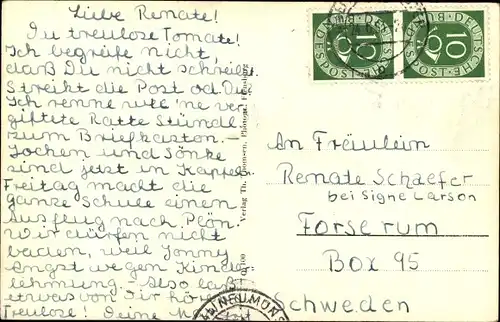 Liebe Renate!
Du treulose Tomate!
Ich begreife nicht,
daß Du nicht schreibst
Streikt die Post od. Du
Ich renne wie 'ne ver-
giftete Ratte Stündl.
zum Briefkasten. –
Jochen und Sönke
sind jetzt in Kappel
Freitag macht die
ganze Schule einen
Ausflug nach Plön.
Wir dürfen nicht
baden, weil Jonny
Angst wegen Kinder
lähmung. – Also laß
etwas von Dir hören
Treulose! Deine
Verlag Th. Thomsen, Flensburg
10 100
DEUTSCHE BUNDESPOST
10
DEUTSCHE BUNDESPOST
10
NEUMÜNS
An Fräulein
Renate Schaefer
bei Signe Larson
Forserum
Box 95
Schweden